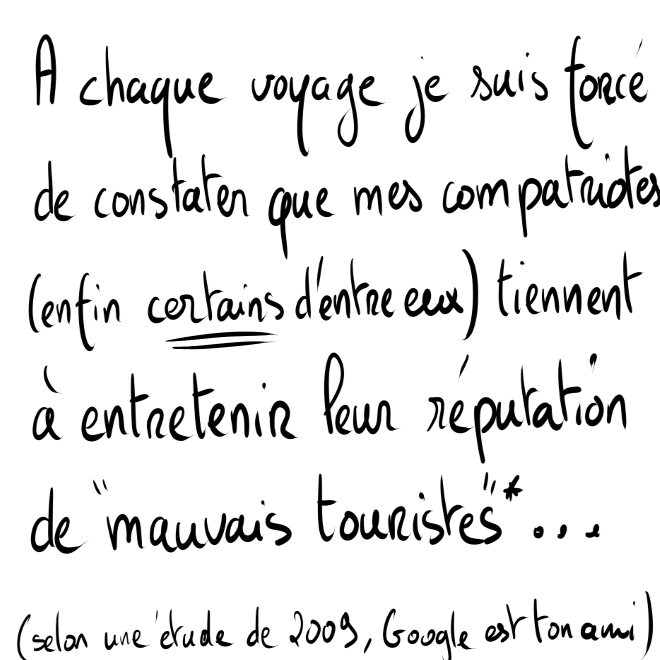 A chaque voyage je suis forcé
de constater que mes compatriotes
(enfin certains d'entre eux) tiennent
à entretenir leur réputation
de "mauvais touristes"*...
(selon une étude de 2009, Google est ton ami)